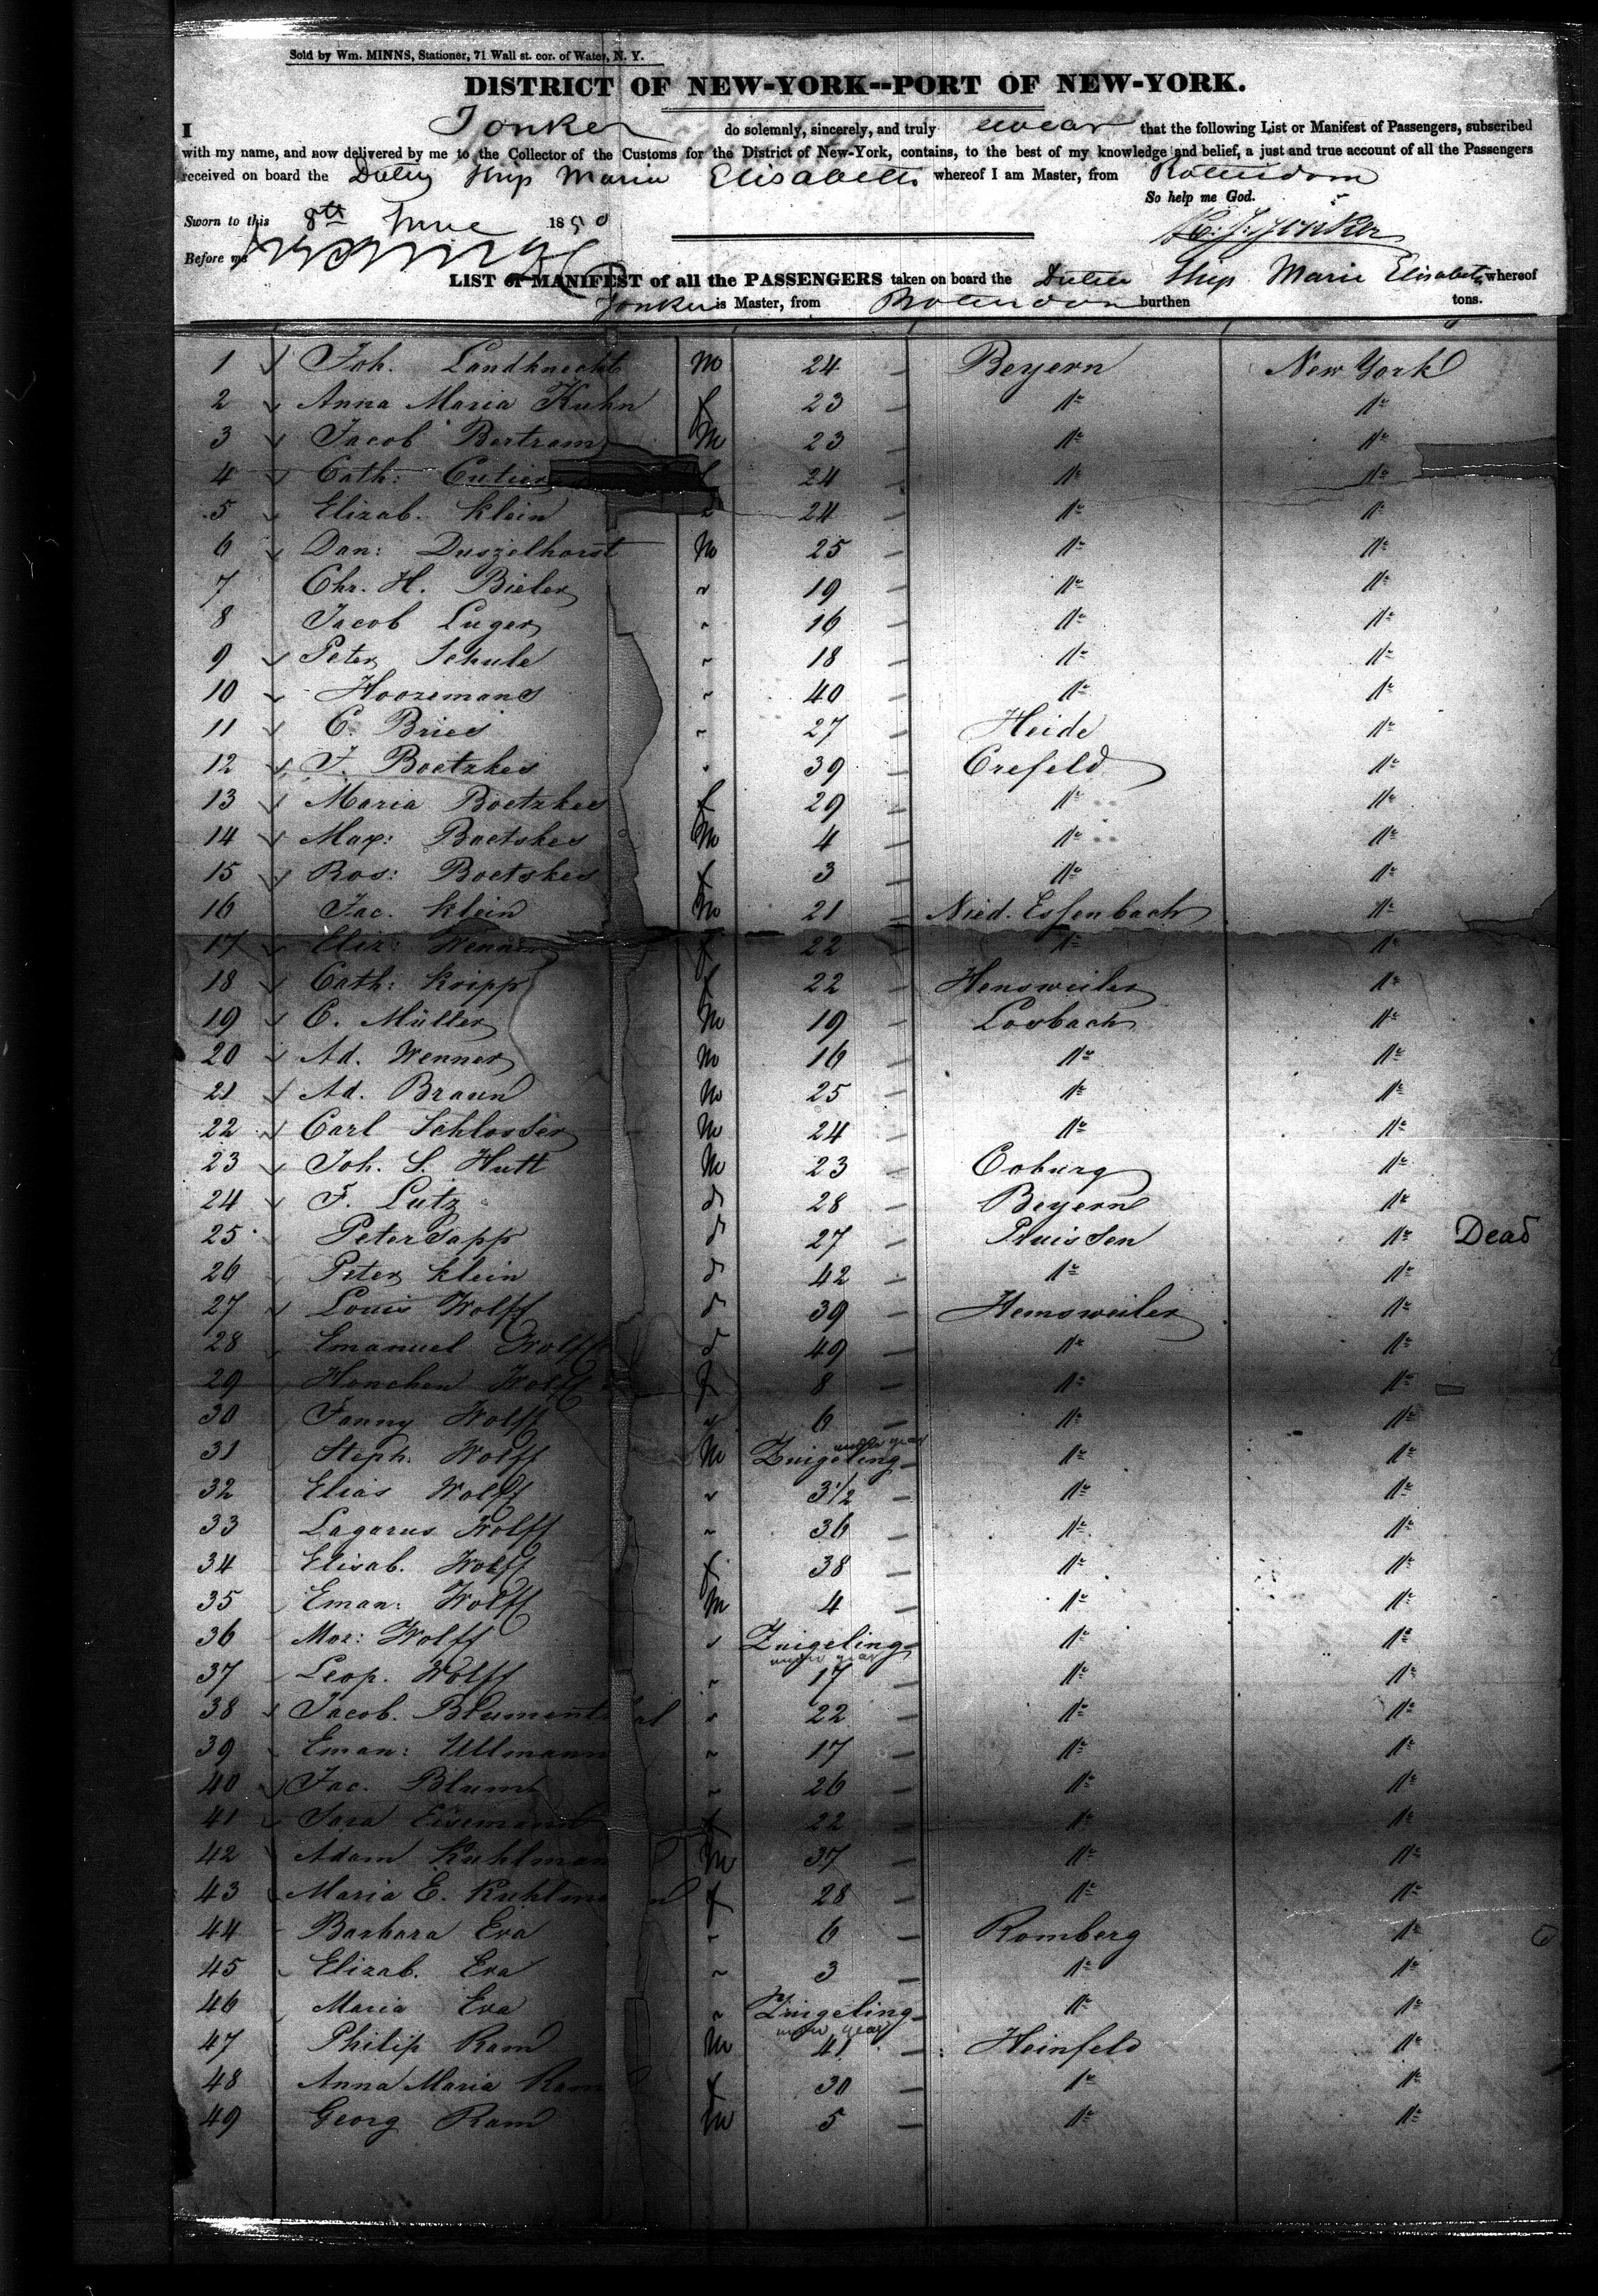 Sold by Wm. MINNS, Stationer, 71 Wall st. cor. of Water, N. Y.
DISTRICT OF NEW-YORK--PORT OF NEW-YORK.
I Jonker do solemnly, sincerely, and truly swear that the following List or Manifest of Passengers, subscribed
with my name, and now delivered by me to the Collector of the Customs for the District of New-York, contains, to the best of my knowledge and belief, a just and true account of all the Passengers
received on board the Dutch Ship Maria Elisabeth whereof I am Master, from Rotterdam
So help me God.
Sworn to this 8th June 1850
Jonker
Before me
LIST or MANIFEST of all the PASSENGERS taken on board the Dutch Ship Marie Elisabeth whereof
Jonker is Master, from Rotterdam burthen tons.
1 Joh. Landknecht m 24 Beyern New York
2 Anna Maria Kuhn f 23 do do
3 Jacob Bertram m 23 do do
4 Cath: f 24 do do
5 Elizab. Klein " 24 do do
6 Dan: Duszelhorst m 25 do do
7 Chr. H. Bieler " 19 do do
8 Jacob Luger " 16 do do
9 Peter Schule " 18 do do
10 Hoozemans " 40 do do
11 C. Bries " 27 Heide do
12 J. Boetzkes " 39 Crefeld do
13 Maria Boetzkes f 29 do do
14 Max: Boetskes m 4 do do
15 Ros: Boetskes f 3 do do
16 Jac. Klein m 21 Nied. Essenbach do
17 Eliz: Wenner f 22 do do
18 Cath: Kripp f 22 Hensweiler do
19 C. Müller m 19 Losbach do
20 Ad. Wenner m 16 do do
21 Ad. Braun m 25 do do
22 Carl Schlosser m 24 do do
23 Joh. S. Hutt m 23 Coburg do
24 F. Lutz d 28 Beyern do
25 Peter Sapp d 27 Pruissen do Dead
26 Peter Klein d 42 do do
27 Louis Wolff d 39 Hemsweiler do
28 Emanuel Wolff d 49 do do
29 Honchen Wolff f 8 do do
30 Fanny Wolff " 6 do do
31 Steph. Wolff m Zuigeling under year do do
32 Elias Wolff " 3 1/2 do do
33 Lazarus Wolff " 36 do do
34 Elisab. Wolff f 38 do do
35 Eman: Wolff m 4 do do
36 Mor: Wolff " Zuigeling under year do do
37 Leop. Wolff " 17 do do
38 Jacob. Blumenthal " 22 do do
39 Eman: Ullmann " 17 do do
40 Jac. Blum " 26 do do
41 Sara Eisemann f 22 do do
42 Adam Kuhlman m 37 do do
43 Maria E. Kuhlmann f 28 do do
44 Barbara Eva " 6 Romberg do
45 Elizab. Eva " 3 do do
46 Maria Eva " Zuigeling under year do do
47 Philip Ram m 41 Heinfeld do
48 Anna Maria Ram f 30 do do
49 Georg Ram m 5 do do